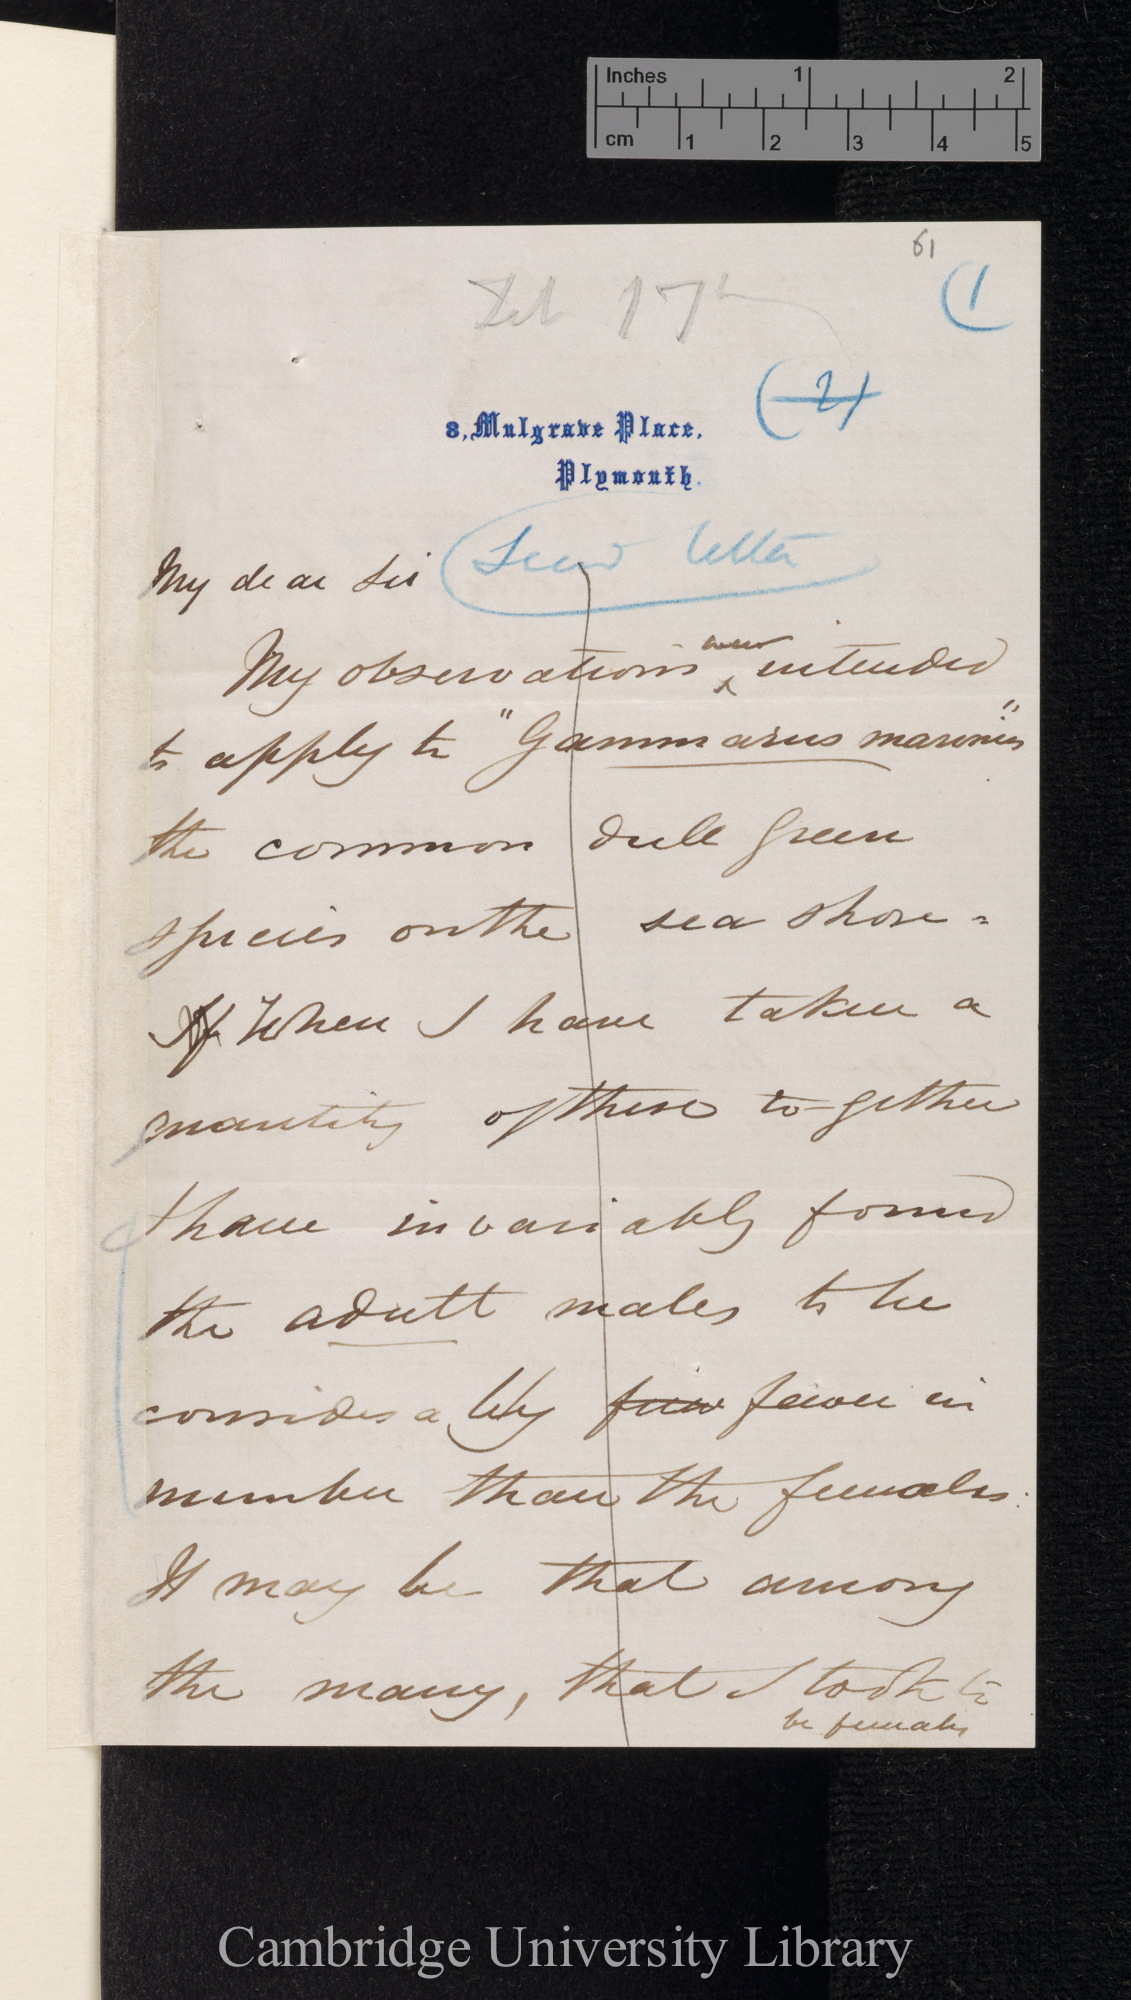 Inches 1 2
cm 1 2 3 4 5
61
(1
Feb 17th
(2)
8, Mulgrave Place,
Plymouth.
My dear Sir
Second letter
were
My observations intended
to apply to "Gammarus marinus"
the common dull green
species on the sea shore -
If When I have taken a
quantity of these to-gether
I have invariably found
the adult males to be
considerably few fewer in
number than the females.
It may be that among
the many, that I took to
be females
Cambridge University Library